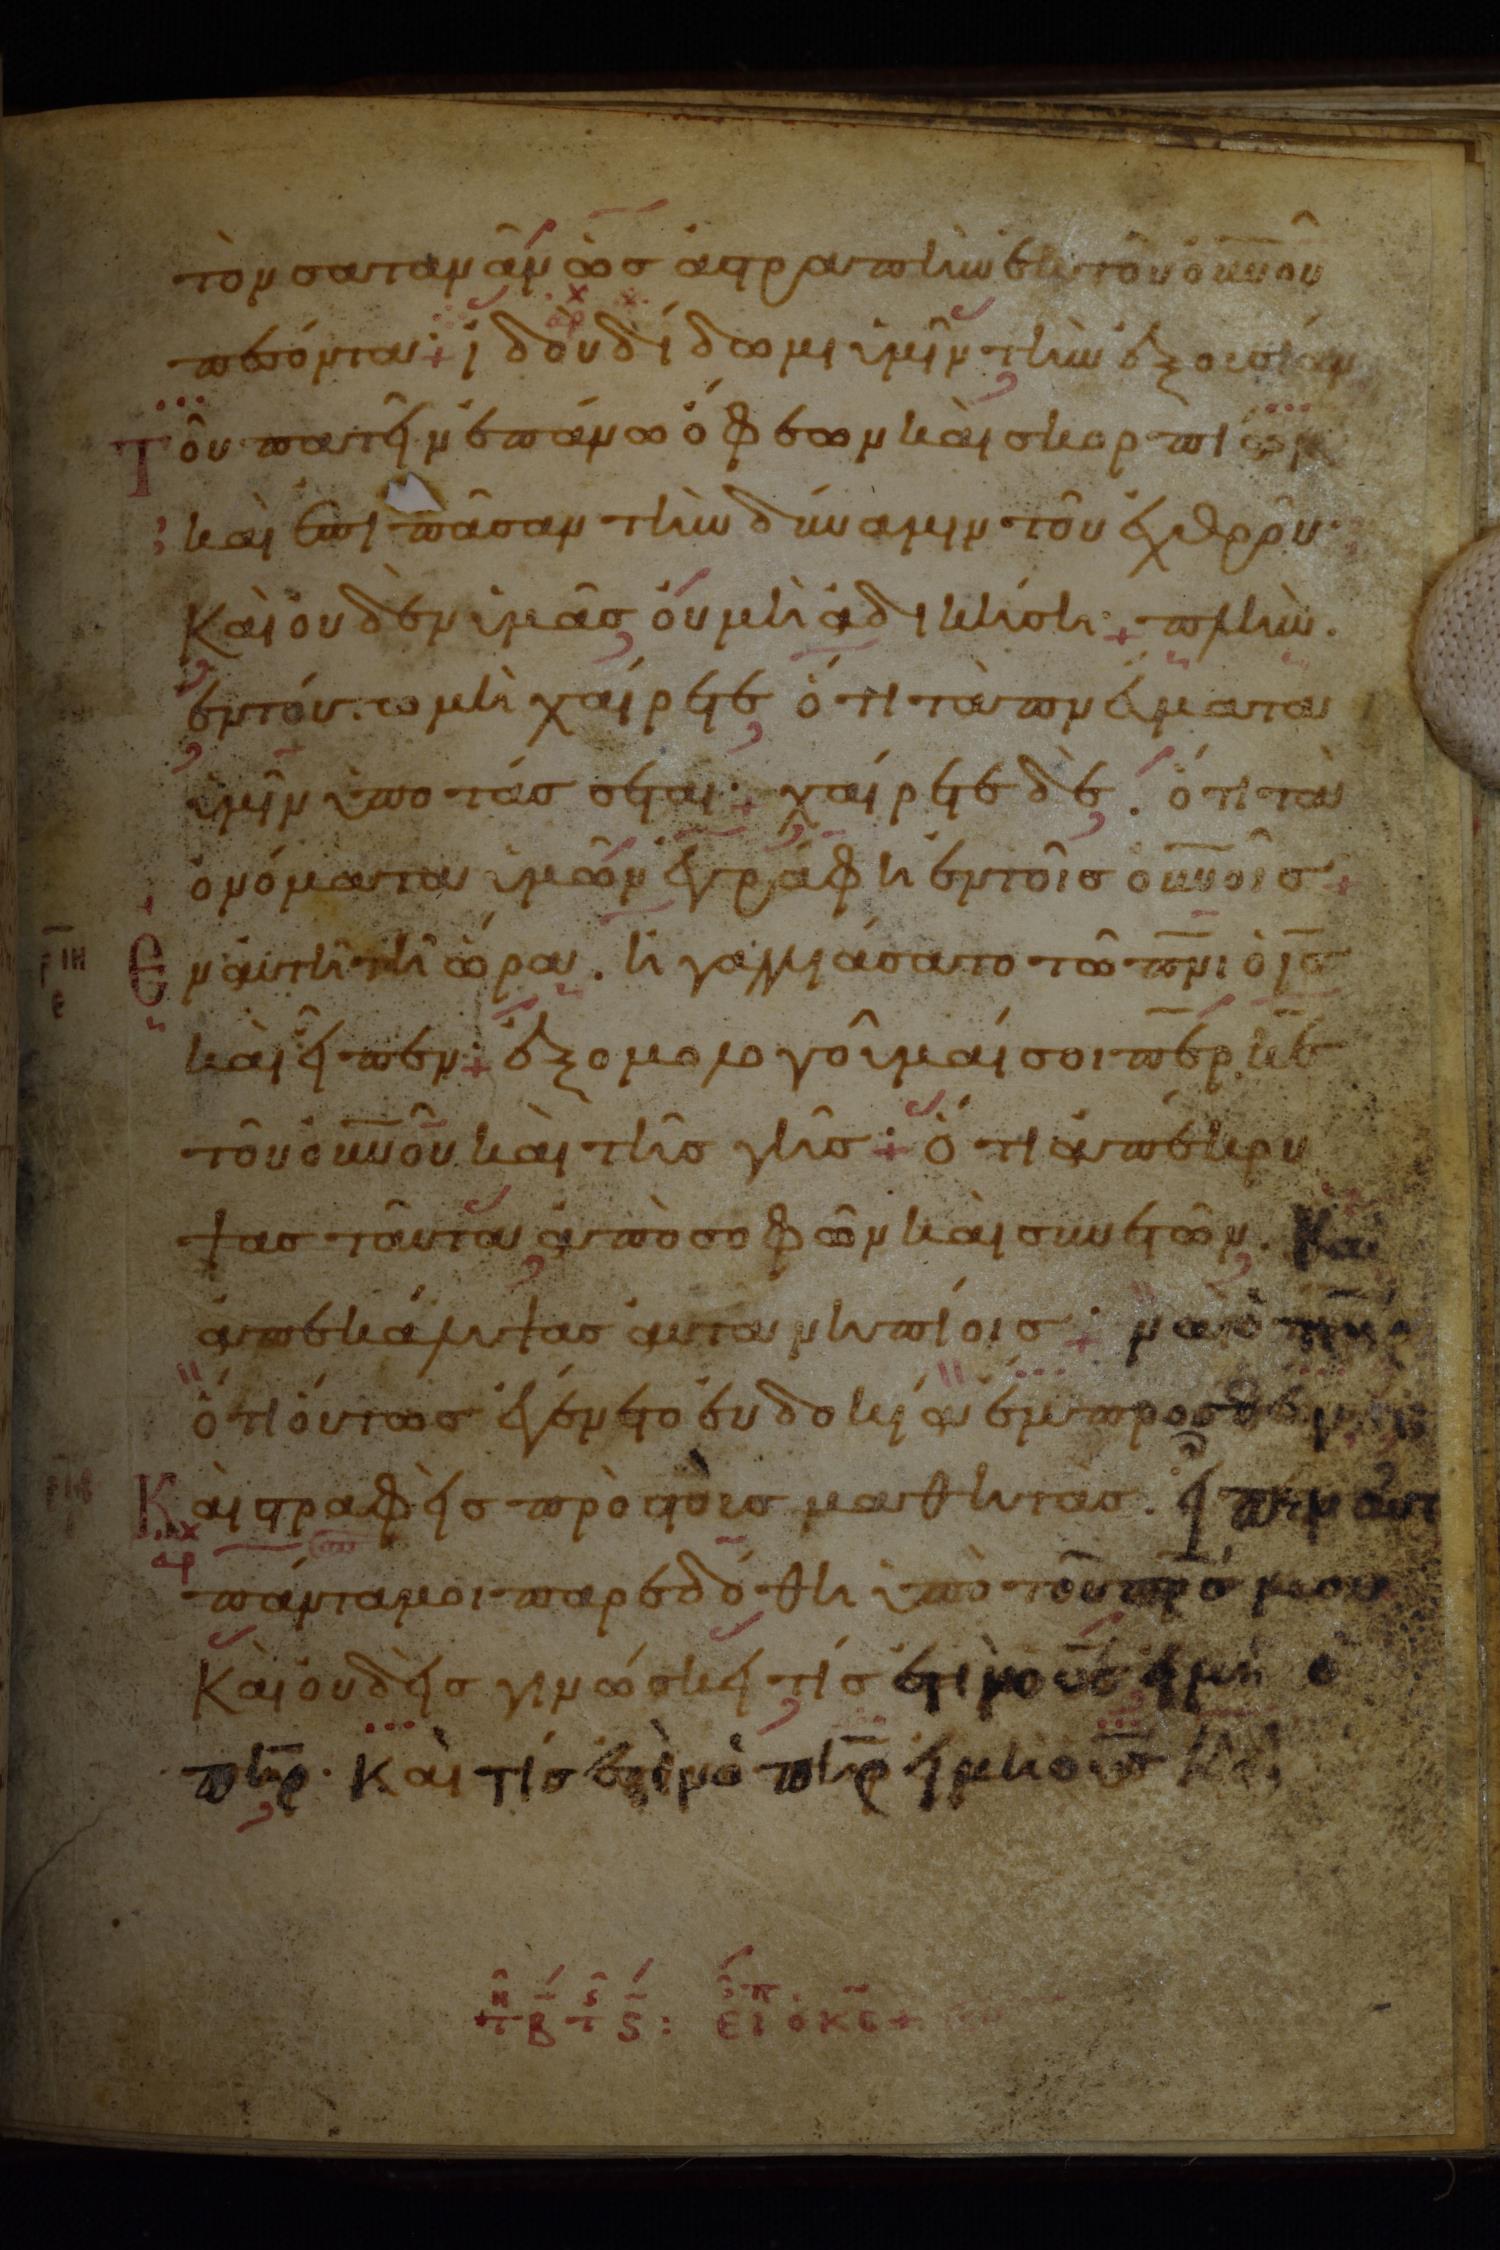 τὸν σαταναν ὡς ἀστραπὴν ἐκ τοῦ οὐ̅ν̅οῦ
πεσόντα· ἰδοὺ δίδωμι ὑμῖν τὴν ἐξουσίαν
Τοῦ πατεῖν ἐπάνω ὄφεων καὶ σκορπίων
καὶ ἐπὶ πᾶσαν τὴν δύναμιν τοῦ ἐχθροῦ·
Καὶ οὐδὲν ὑμᾶς οὐ μὴ ἀδικήσῃ· πλὴν.
ἐν τούτω μὴ χαίρετε ὅτι τὰ πνεύματα
ὑμῖν ὑποτάσσεται· χαίρετε δὲ. ὅτι τὰ
ὀνόματα ὑμῶν ἐγράφη ἐν τοῖς οὐ̅ν̅οῖς
ρ̅ι̅η̅ ε Εν αὐτῆ τῆ ὥρα. ἠγαλλιάσατο τῶ π̅ν̅ι ὁ ι̅ς̅
καὶ εἶπεν· ἐξομολογοῦμαί σοι π̅ε̅ρ κ̅ε̅
τοῦ οὐ̅ν̅οῦ καὶ τῆς γῆς· ὅτι ἀπέκρυ
ψας ταῦτα ἀπὸ σοφῶν καὶ συνετῶν. Καὶ
ἀπεκάλυψας αὐτὰ νηπίοις· ναὶ ὁ π̅η̅ρ
ὅτι οὕτως ἐγένετο εὐδοκία ἔμπροσθέν
Καὶ στραφεὶς πρὸς τοὺς μαθητὰς. εἶπεν αὐτ
πάντα μοι παρεδόθη ὑπὸ τοῦ π̅ρ̅ς μου
Καὶ οὐδεὶς γινώσκει τίς ἐστιν ὁ υ̅ς̅ εἰ μὴ ὁ
π̅η̅ρ̅· Καὶ τίς ἐστὶν ὁ π̅η̅ρ̅ εἰ μὴ ὁ υ̅ς̅ Καὶ